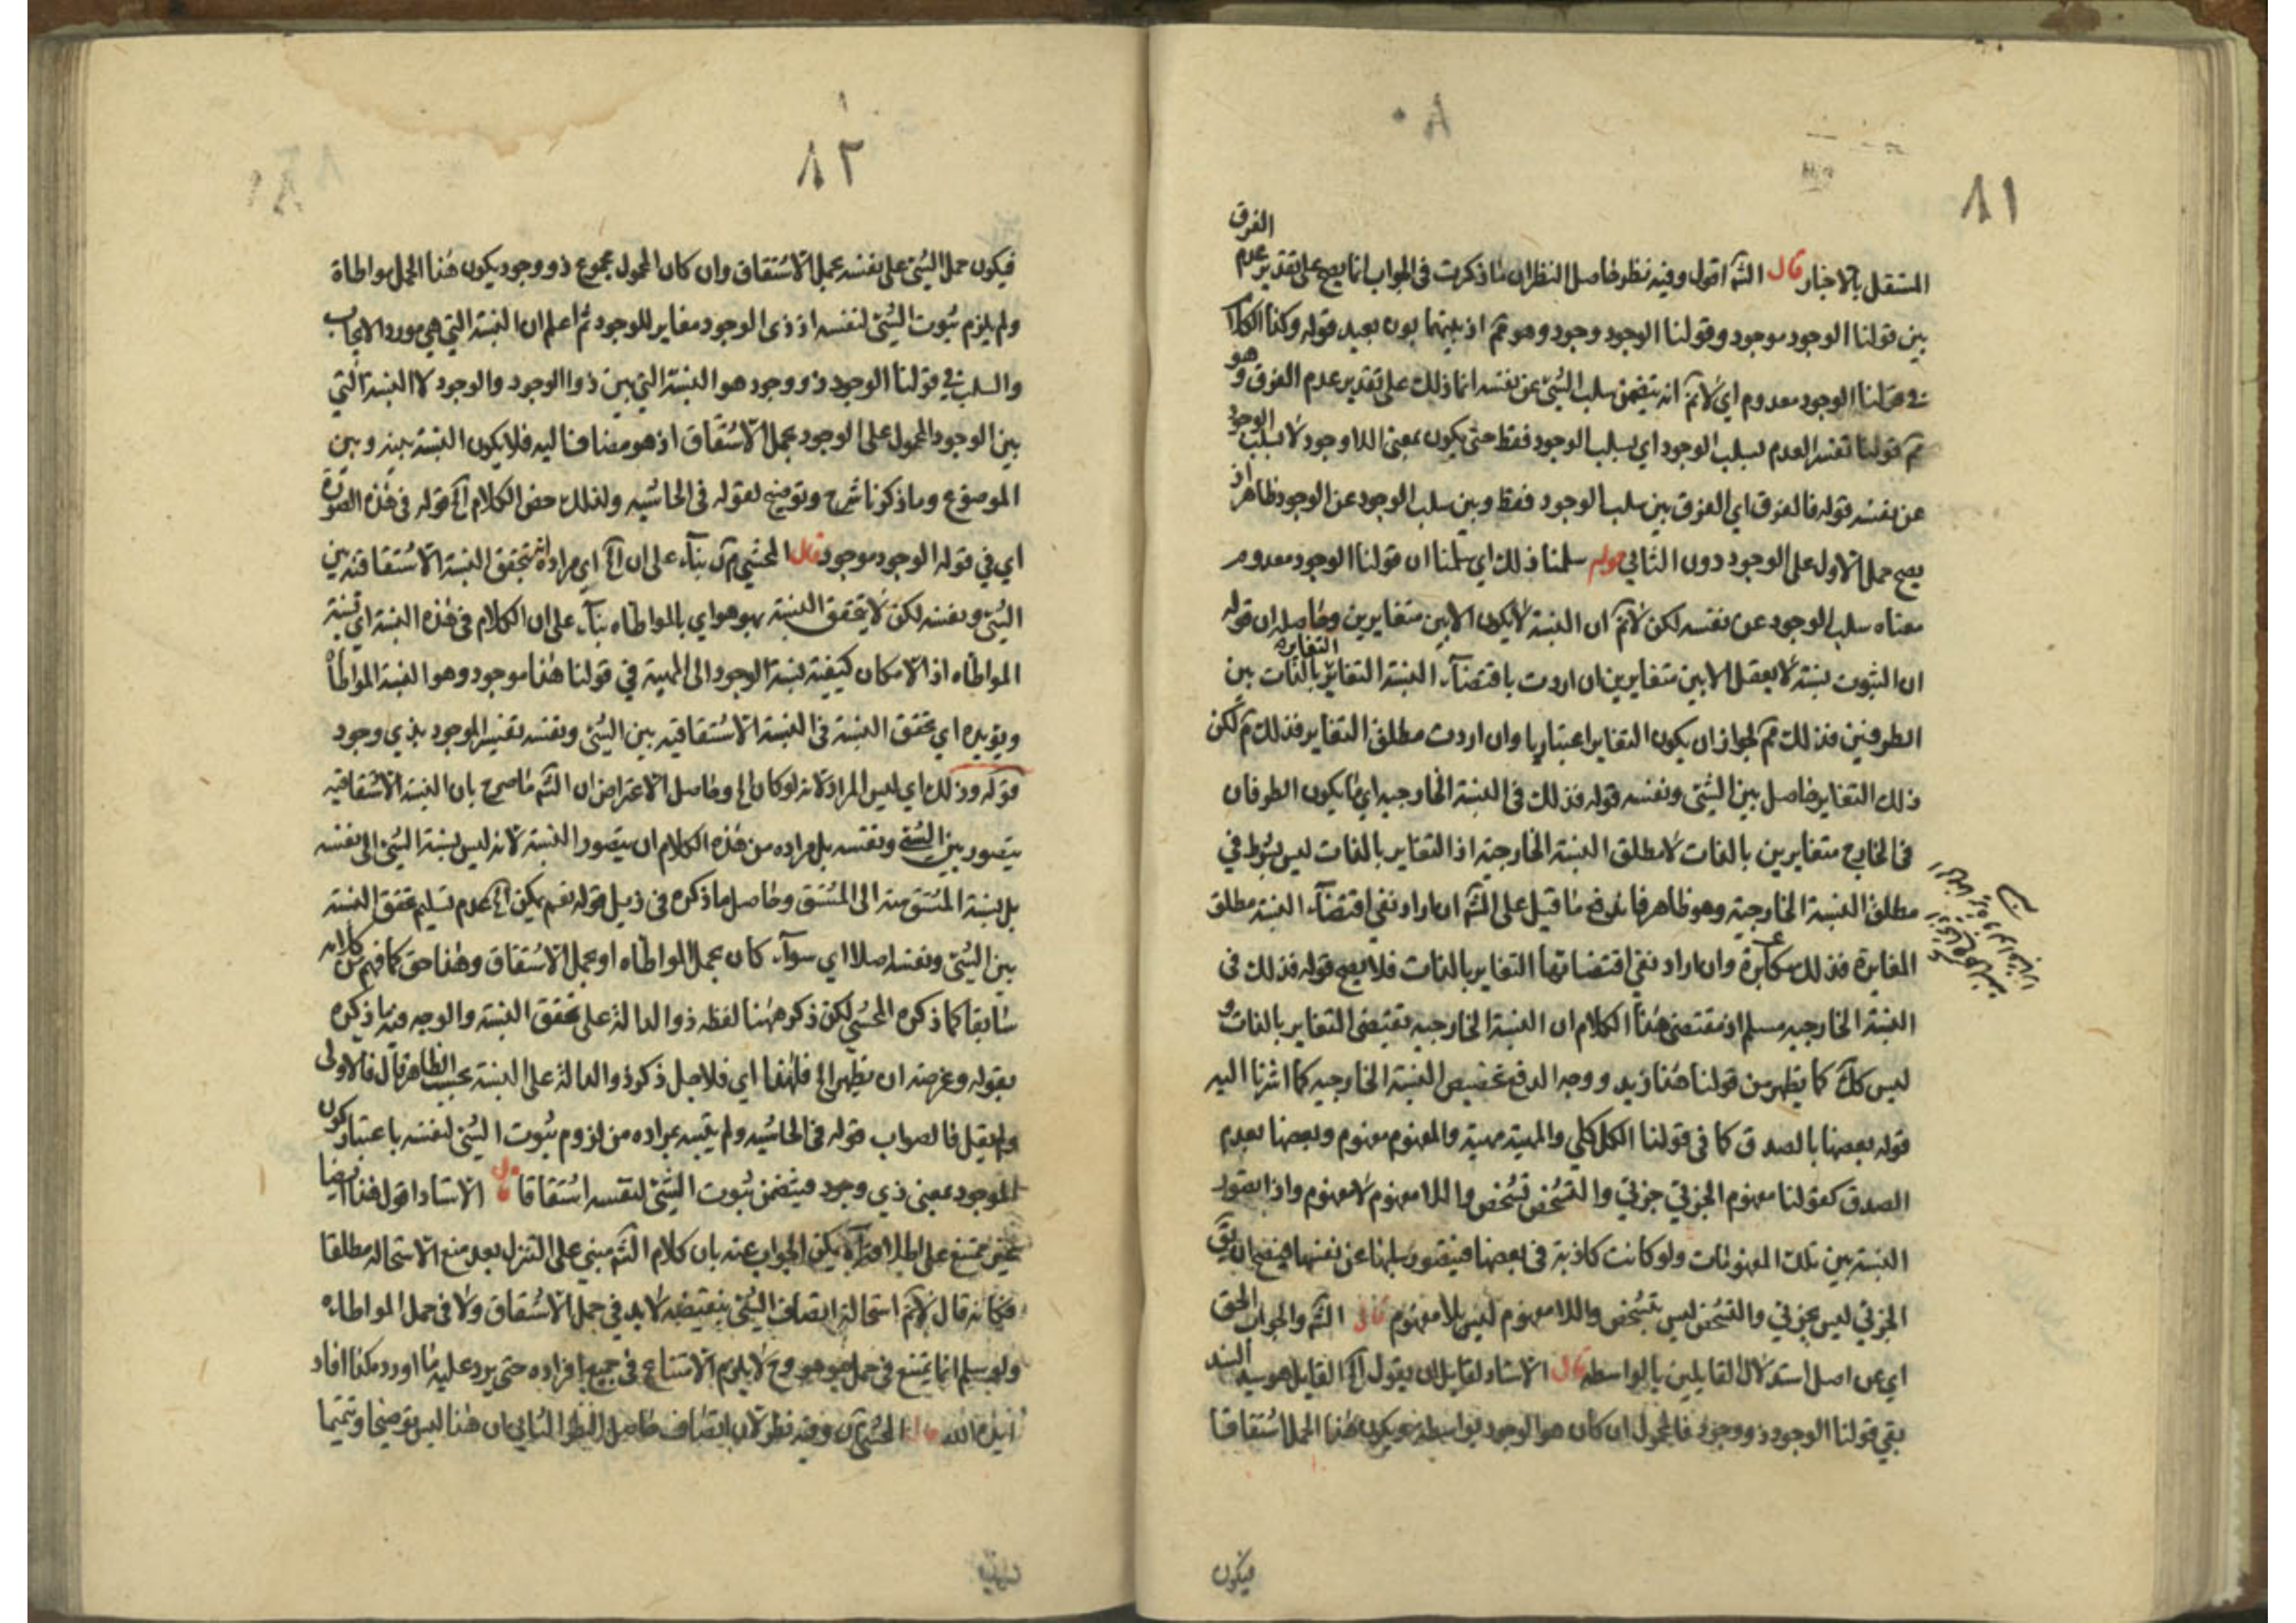 ٨١
الفرق
المستقل بالاخبار قال الشم اقول وفيه نظر حاصل النظر ان ما ذكرت في الجواب انما يصح على تقدير عدم
بين قولنا الوجود موجود وقولنا الوجود وجود وهو مم اذ بينهما بون بعيد قوله وكذا الكلام
في قولنا الوجود معدوم اي لانم انه يتضمن سلب الشئ عن نفسه انما ذلك على تقدير عدم الفرق وهو
مم قولنا تفسر العدم بسلب الوجود اي بسلب الوجود فقط حتى يكون بمعنى اللاوجود لا بسلب الوجود
عن نفسه قوله فالفرق اي الفرق بين سلب الوجود فقط وبين سلب الوجود عن الوجود ظاهر اذ
يصح حمل الاول على الوجود دون الثاني قوله سلمنا ذلك اي سلمنا ان قولنا الوجود معدوم
معناه سلب الوجود عن نفسه لكن لانم ان النسبة لا يكون الا بين متغايرين وحاصله ان قوله
ان الثبوت نسبة لا يعقل الا بين متغايرين ان اردت باقتضاء النسبة التغاير بالذات بين
الطرفين فذلك مم لجواز ان يكون التغاير اعتباريا وان اردت مطلق التغاير فذلك مم لكن
ذلك التغاير حاصل بين الشئ ونفسه قوله فذلك في النسبة الخارجيه اي ما يكون الطرفان
في الخارج متغايرين بالذات لا مطلق النسبة الخارجية اذ التغاير بالذات ليس بشرط في
مطلق النسبة الخارجية وهو ظاهر فاندفع ما قيل على الشم ان اراد نفي اقتضاء النسبة مطلق
المغايرة فذلك مكابرة وان اراد نفي اقتضائها التغاير بالذات فلا يصح قوله فذلك في
النسبة الخارجيه مسلم اذ مقتضى هذا الكلام ان النسبة الخارجيه يقتضى التغاير بالذات و
ليس كك كما يظهر من قولنا هذا زيد ووجه الدفع تخصيص النسبة الخارجيه كما اشرنا اليه
قوله بعضها بالصدق كما في قولنا الكل كلي والمهية مهية والمفهوم مفهوم وبعضها بعدم
الصدق كقولنا مفهوم الجزئي جزئي والتشخص تشخص واللامفهوم لا مفهوم واذا يتصور
النسبة بين تلك المفهومات ولو كانت كاذبة في بعضها فيتصور سلبها عن نفسها فيصح ان يق
الجزئي ليس بجزئي والتشخص ليس بتشخص واللامفهوم ليس بلا مفهوم قال الشم والجواب الحق
اي عن اصل استدلال القايلين بالواسطه قال الاستاد لقايل ان يقول آه القايل هو سيد السند
بقي قولنا الوجود ذو وجود فالمحمول ان كان هو الوجود بواسطه ذو يكون هذا الحمل اشتقاقا
فيكون
٨٢
فيكون حمل الشئ على نفسه بحمل الاشتقاق وان كان المحمول مجموع ذو وجود يكون هذا الحمل مواطاة
ولم يلزم ثبوت الشئ لنفسه اذ ذي الوجود مغاير للوجود ثم اعلم ان النسبة التي هي مورد الايجاب
والسلب في قولنا الوجود ذو وجود هو النسبة التي بين ذو الوجود والوجود لا النسبة التي
بين الوجود المحمول على الوجود بحمل الاشتقاق اذ هو مضاف اليه فلا يكون النسبة بينه وبين
الموضوع وما ذكرنا شرح وتوضيح لقوله في الحاشيه ولذلك خص الكلام آه قوله في هذه الصورة
اي في قوله الوجود موجود قال المحشي م آن بناء على ان آه اي مراده انه يتحقق النسبة الاشتقاقيه بين
الشئ ونفسه لكن لا يتحقق النسبة بهو هو اي بالمواطاه بناء على ان الكلام في هذه النسبة اي نسبة
المواطاه اذ الامكان كيفية نسبة الوجود الى المهية في قولنا هذا موجود وهو النسبة المواطاة
ويؤيده اي تحقق النسبة في النسبة الاشتقاقيه بين الشئ ونفسه تفسير الموجود بذي وجود
قوله وذلك اي ليس المراد لانه لو كان آه وحاصل الاعتراض ان الشم ما صرح بان النسبة الاشتقاقيه
يتصور بين الشئ ونفسه بل مراده من هذه الكلام ان يتصور النسبة لانه ليس نسبة الشئ الى نفسه
بل نسبة المشتق منه الى المشتق وحاصل ما ذكره في ذيل قوله نعم يمكن آه عدم تسليم تحقق النسبة
بين الشئ ونفسه اصلا اي سواء كان بحمل المواطاه او بحمل الاشتقاق وهذا حق كما فهم من كلامه
سابقا كما ذكره المحشي لكن ذكر ههنا لفظه ذو الدالة على تحقق النسبة والوجه فيه ما ذكره
بقوله وغرضه ان يظهر آه فلهذا اي فلاجل ذكر ذو الدالة على النسبة بحسب الظاهر قال فالاولى
ولم يقل فالصواب قوله في الحاشيه ولم يتنبه بمراده من لزوم ثبوت الشئ لنفسه باعتبار كون
الموجود بمعنى ذي وجود فيتضمن ثبوت الشئ لنفسه اشتقاقا قال الاستاد اقول هذا ايضا
غير ممتنع على اطلاقه آه يمكن الجواب عنه بان كلام الشم مبني على التنزل بعد منع الاستحاله مطلقا
فكانه قال لانم استحالة اتصاف الشئ بنقيضه لا بد في حمل الاشتقاق ولا في حمل المواطاه
ولو سلم انما يمتنع في حمل هو هو وح لا يلزم الامتناع في جميع افراده حتى يرد عليه ما اورد هكذا افاد
ايده الله قال المحشي م آن وفيه نظر لان اتصاف حاصل النظر الثاني ان هذا ليس توضيحا وتتميما